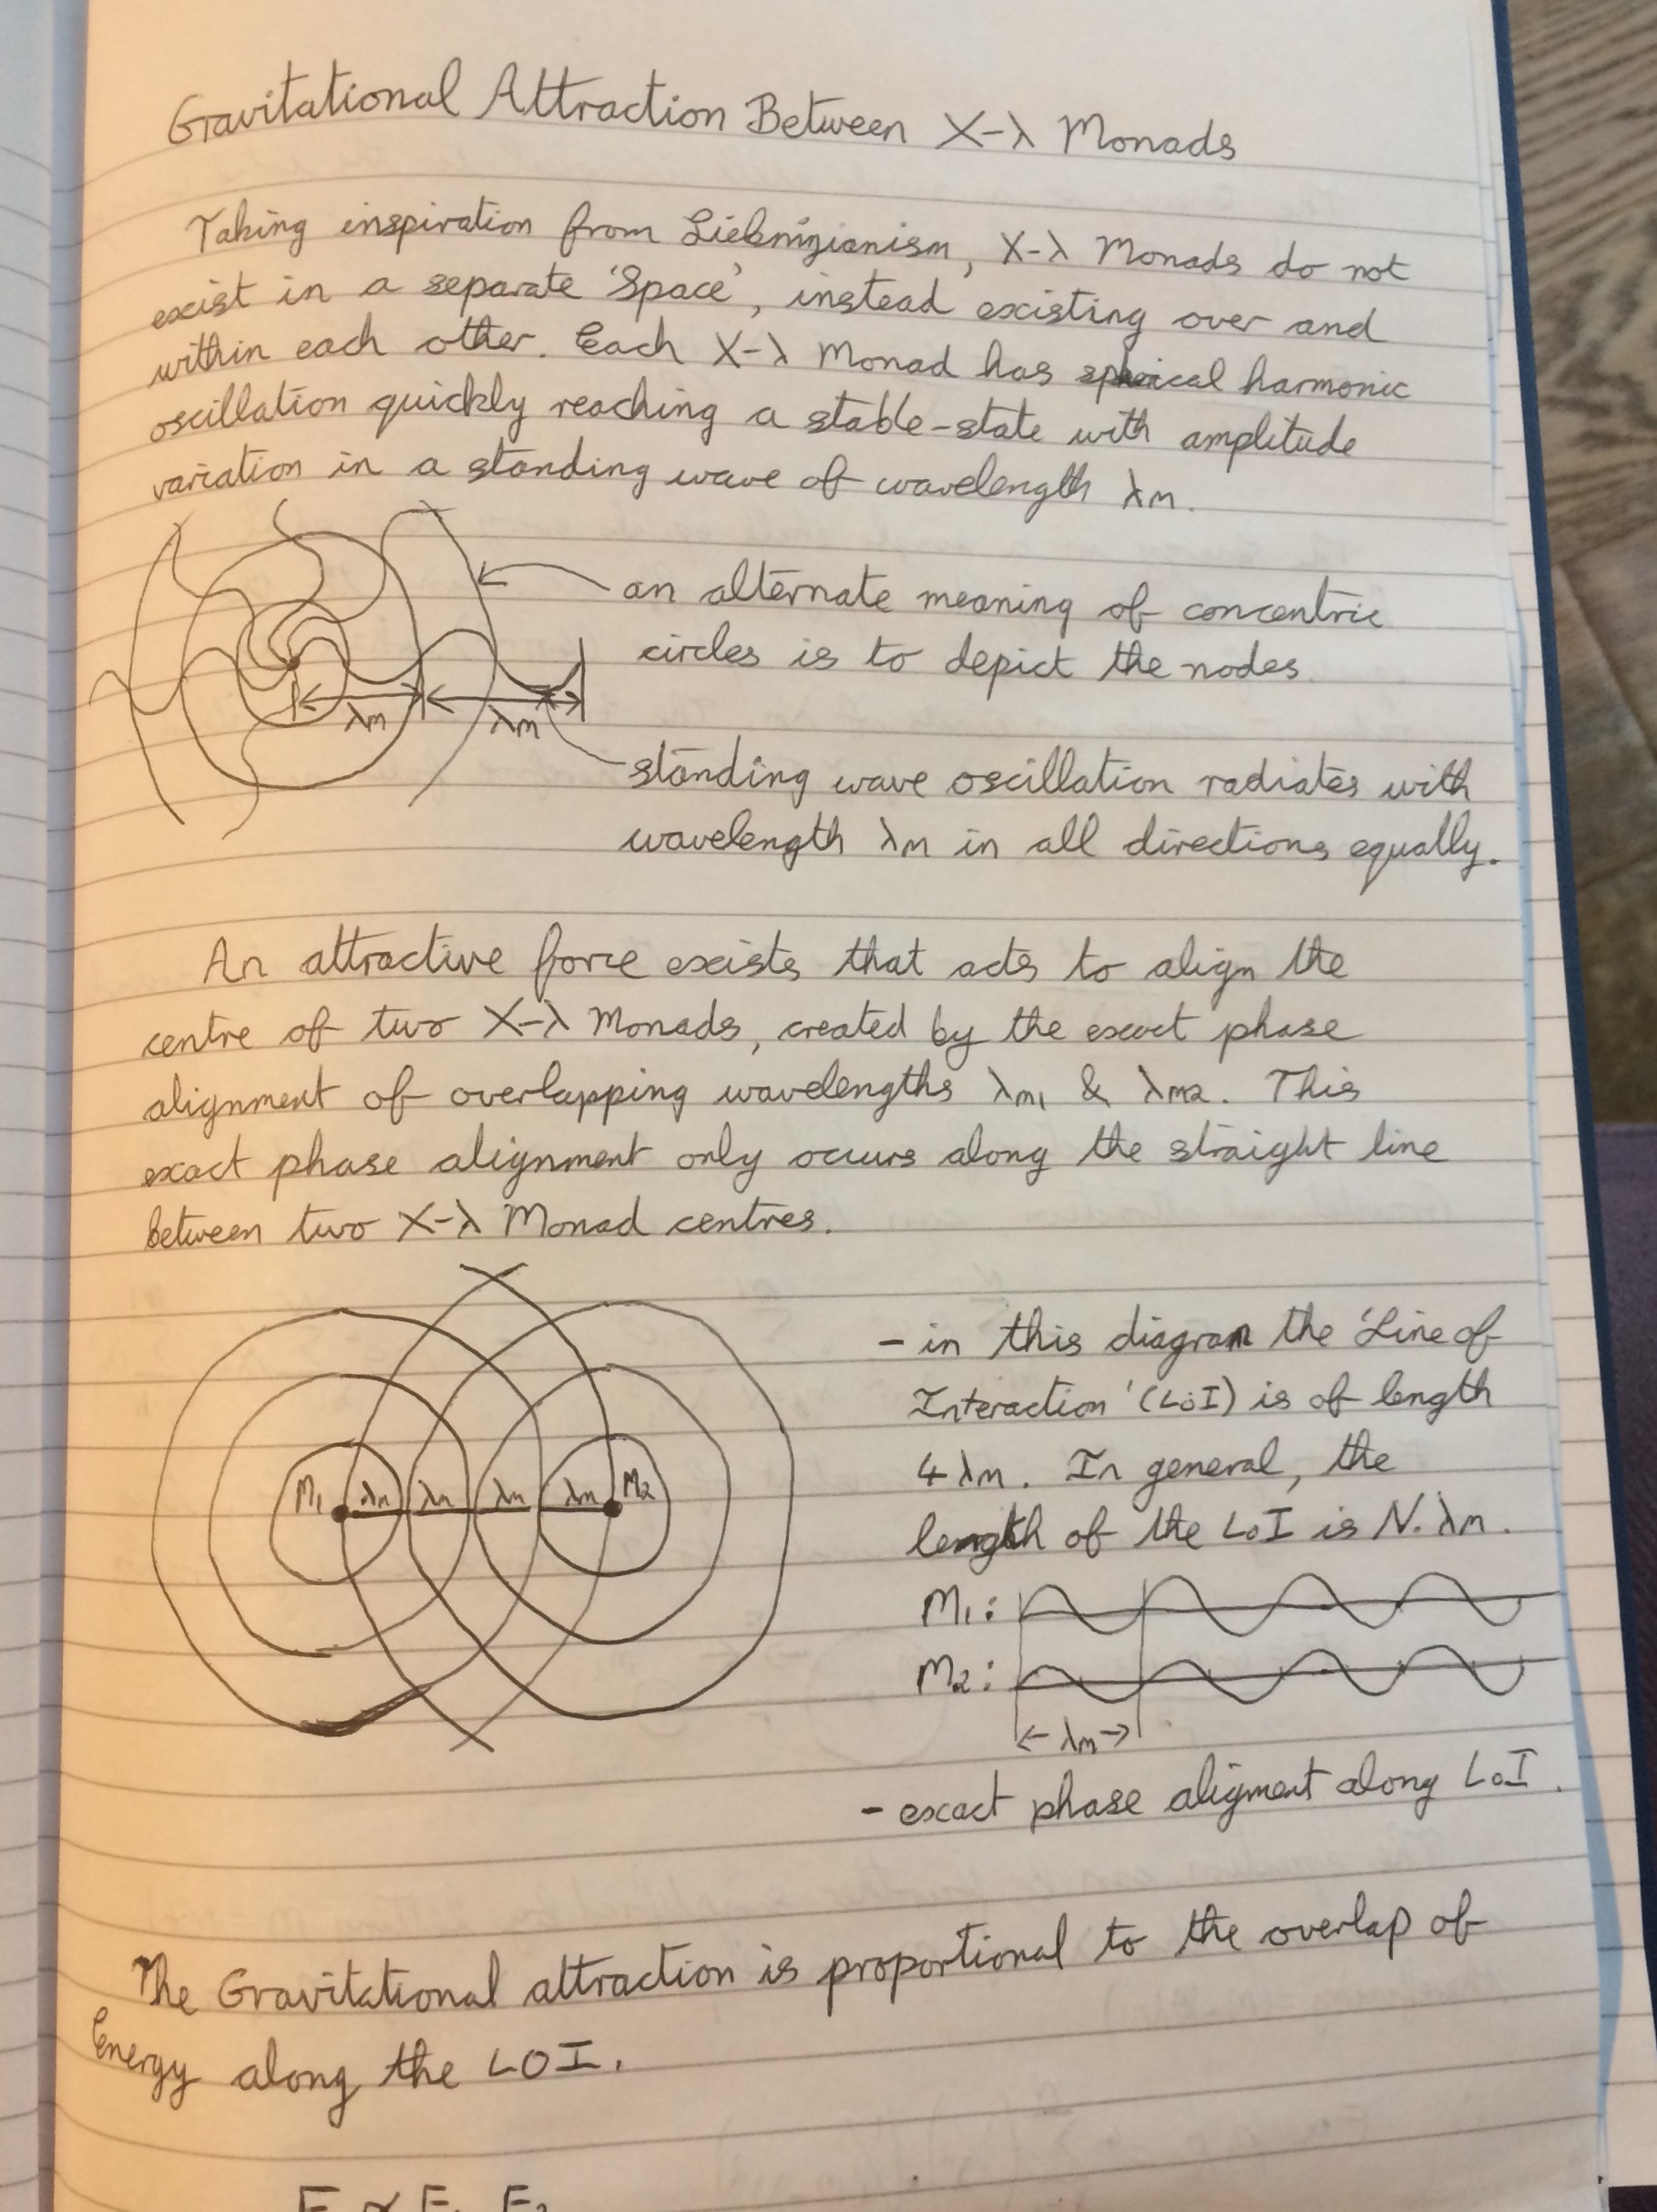 Gravitational Attraction Between X-λ Monads
Taking inspiration from Liebnizianism, X-λ Monads do not
exist in a separate 'Space', instead existing over and
within each other. Each X-λ Monad has spherical harmonic
oscillation quickly reaching a stable-state with amplitude
variation in a standing wave of wavelength λm.
an alternate meaning of concentric
circles is to depict the nodes.
λm λm
standing wave oscillation radiates with
wavelength λm in all directions equally.
An attractive force exists that acts to align the
centre of two X-λ Monads, created by the exact phase
alignment of overlapping wavelengths λm1 & λm2. This
exact phase alignment only occurs along the straight line
between two X-λ Monad centres.
- in this diagram the 'Line of
Interaction' (LoI) is of length
4λm. In general, the
length of the LoI is N.λm.
M1 λm λm λm λm M2
M1:
M2:
λm
- exact phase aligment along LoI.
The Gravitational attraction is proportional to the overlap of
Energy along the LOI.
F ∝ E1 E2